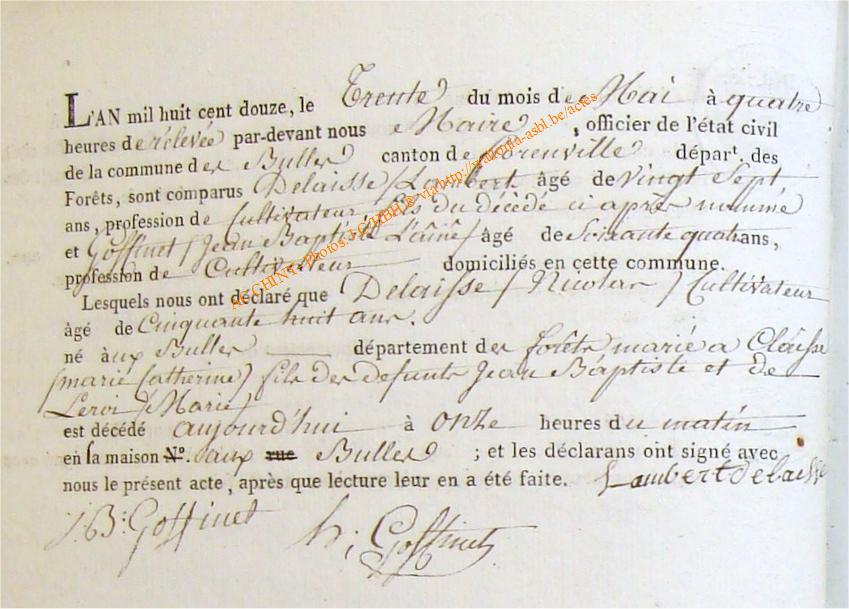 L'AN mil huit cent douze, le Trente du mois de Mai à quatre
heures de relevée par-devant nous Maire, officier de l'état civil
de la commune des Bulles canton de florenville départ. des
Forêts, sont comparus Delaisse (Lambert) âgé de vingt Sept
ans, profession de Cultivateur, fils du décédé ci après nommé
et Goffinet (Jean Baptiste L'aîné) âgé de Soixante quatre ans,
profession de Cultivateur domiciliés en cette commune.
Lesquels nous ont déclaré que Delaisse (Nicolas) Cultivateur
âgé de Cinquante huit ans.
né aux Bulles département des forêts, marié a Claisse
(marie Catherine) fils des defunts Jean Baptiste et de
Leroi (Marie)
est décédé aujourd'hui à onze heures du matin
en sa maison N°. aux rue Bulles ; et les déclarans ont signé avec
nous le présent acte, après que lecture leur en a été faite. Lambert delaisse
J: B: Goffinet h; Goffinet
AGCHINY - Photos via http://www.luxroots-asbl.be/actes